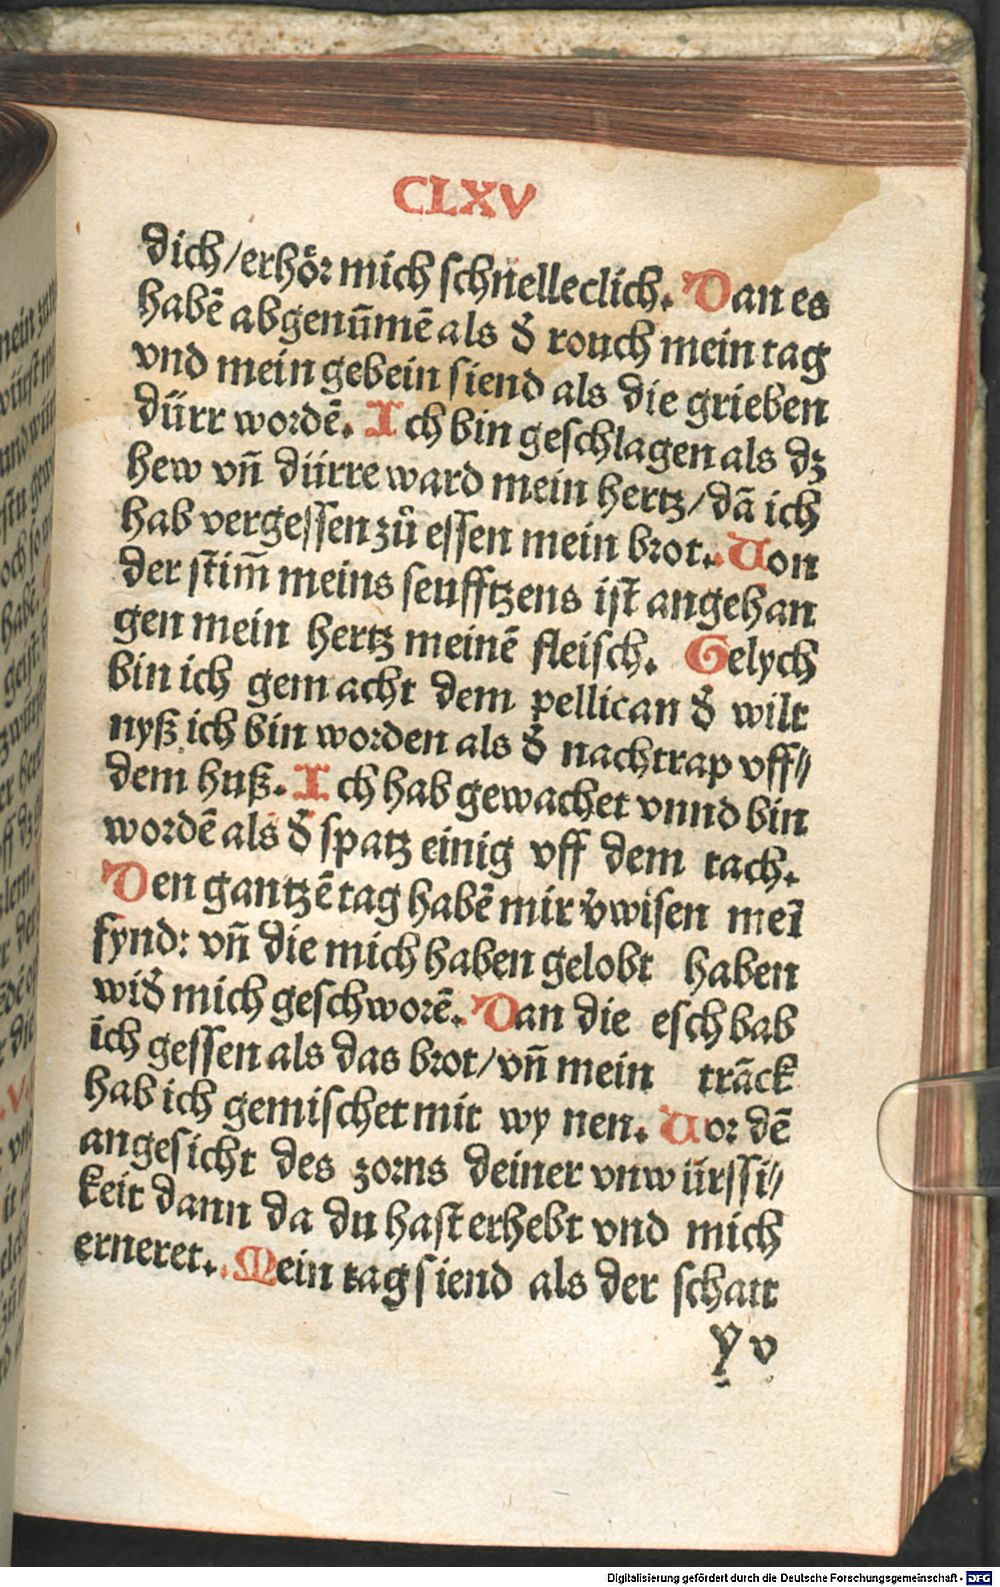 CLXV
dich/erhoͤr mich schnelleclich. Dan es
habē abgenūmē als đ rouch mein tag
vnd mein gebein siend als die grieben
dürr wordē. Ich bin geschlagen als dz
hew vñ dürre ward mein hertz/dā ich
hab vergessen zů essen mein brot. Von
der stim̄ meins seufftzens ist angehan
gen mein hertz meinē fleisch. Gelych
bin ich gemacht dem pellican đ wilt
nyß ich bin worden als đ nachtrap vff⸗
dem huß. Ich hab gewachet vnnd bin
wordē als đ spatz einig vff dem tach.
Den gantzē tag habē mir v̄wisen meī
fynd: vñ die mich haben gelobt haben
wiđ mich geschworē. Dan die esch bab
ich gessen als das brot/vñ mein trāck
hab ich gemischet mit wy nen. Vor dē
angesicht des zorns deiner vnwürssi⸗
keit dann da du hast erhebt vnd mich
erneret. Mein tag siend als der schatt
y v
Digitalisierung gefördert durch die Deutsche Forschungsgemeinschaft - DFG